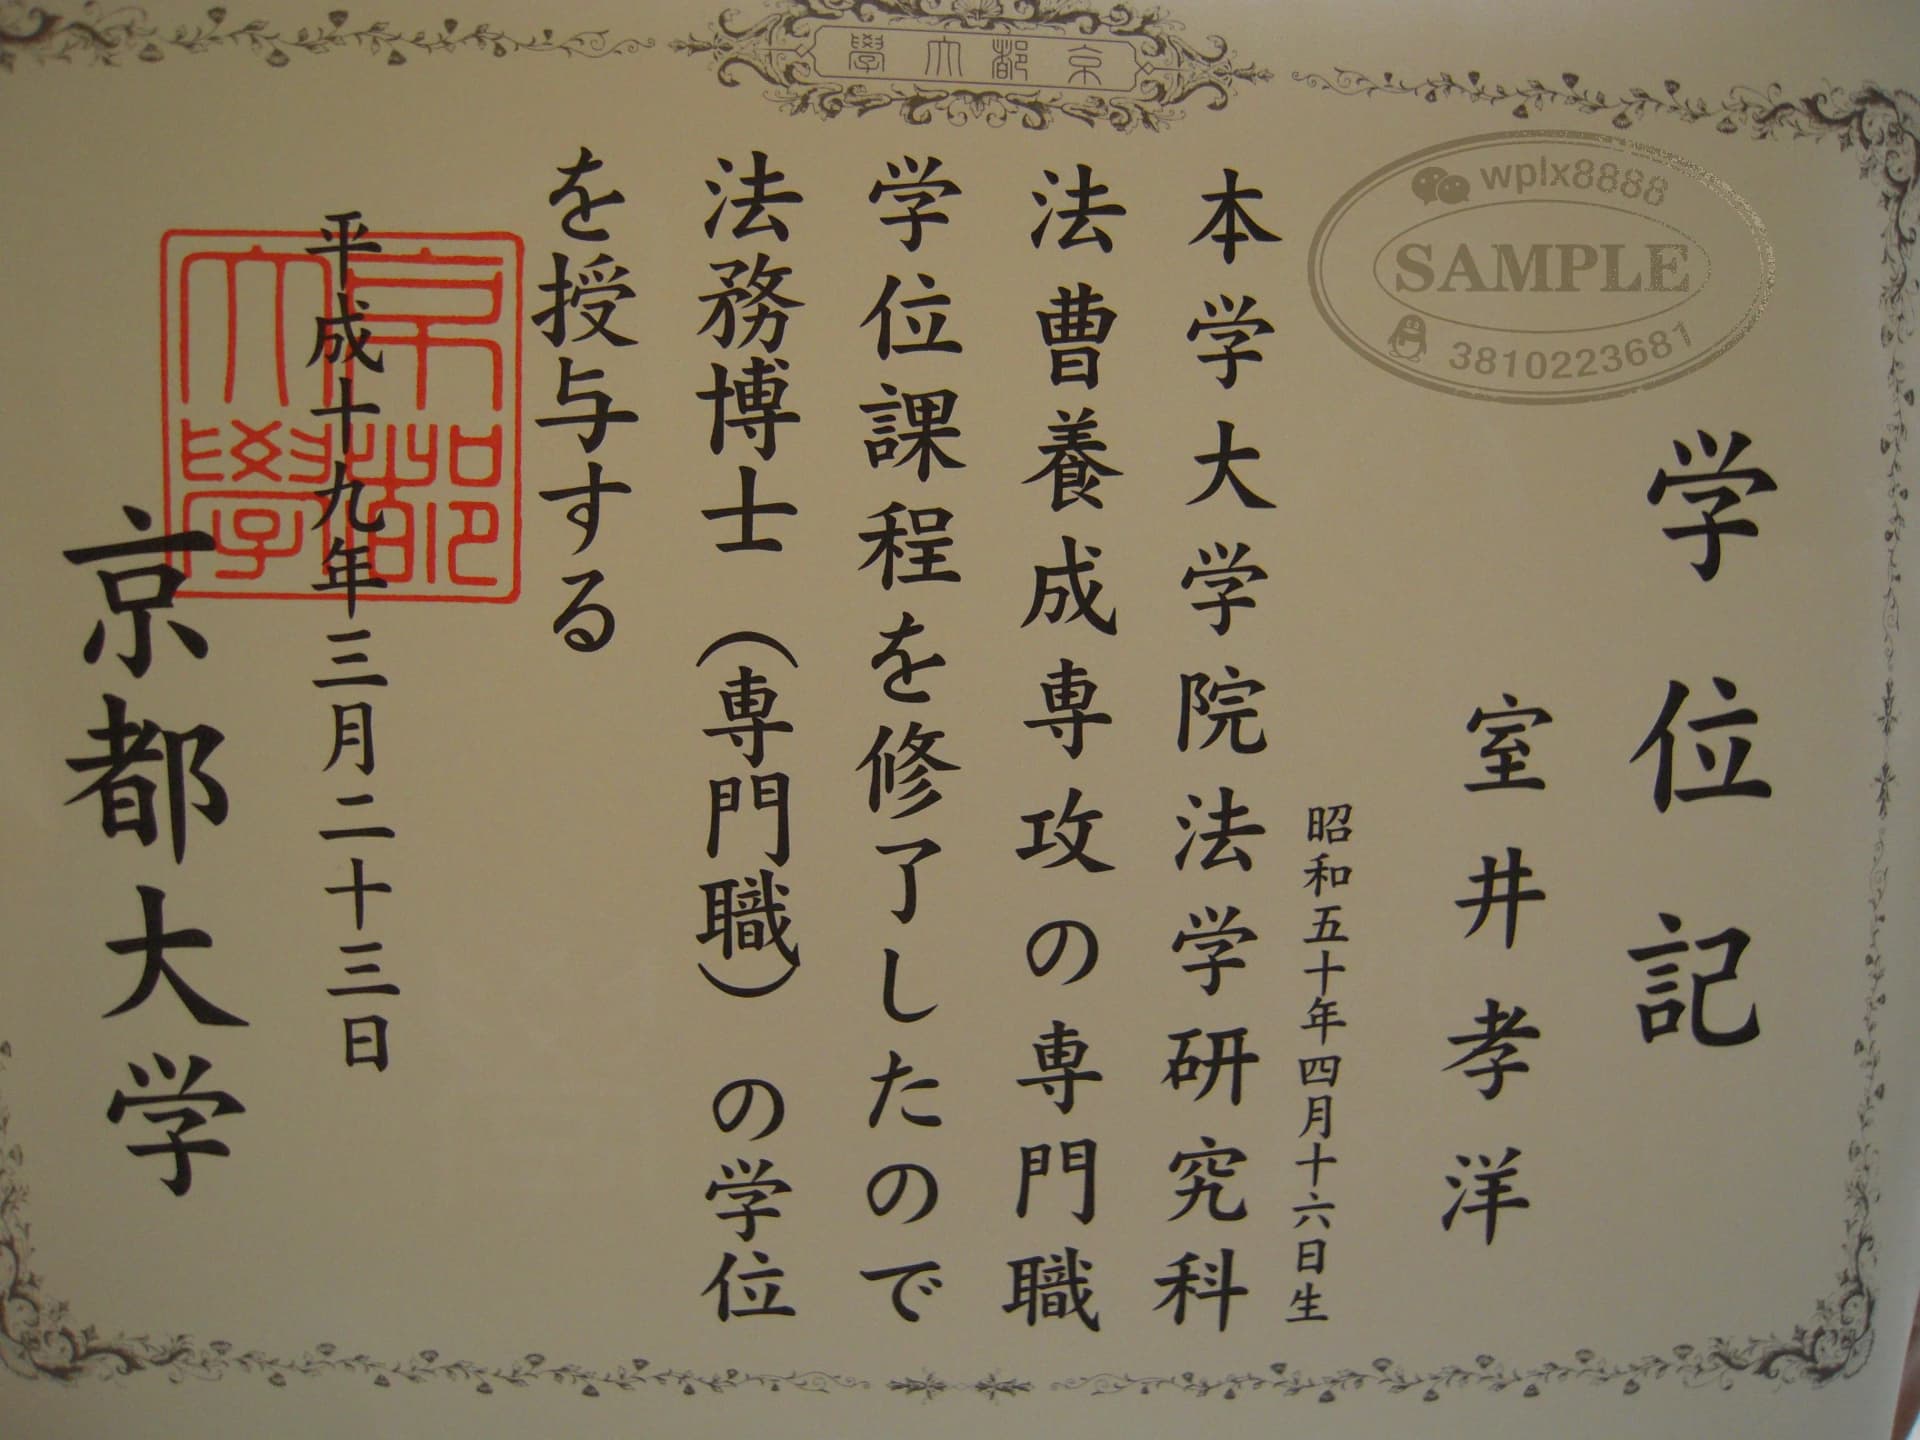 京都大學
wplx8888
SAMPLE
3810223681
学位記
室井孝洋
昭和五十年四月十六日生
本学大学院法学研究科
法曹養成専攻の専門職
学位課程を修了したので
法務博士（専門職）の学位
を授与する
平成十九年三月二十三日
京都大学
京都大學